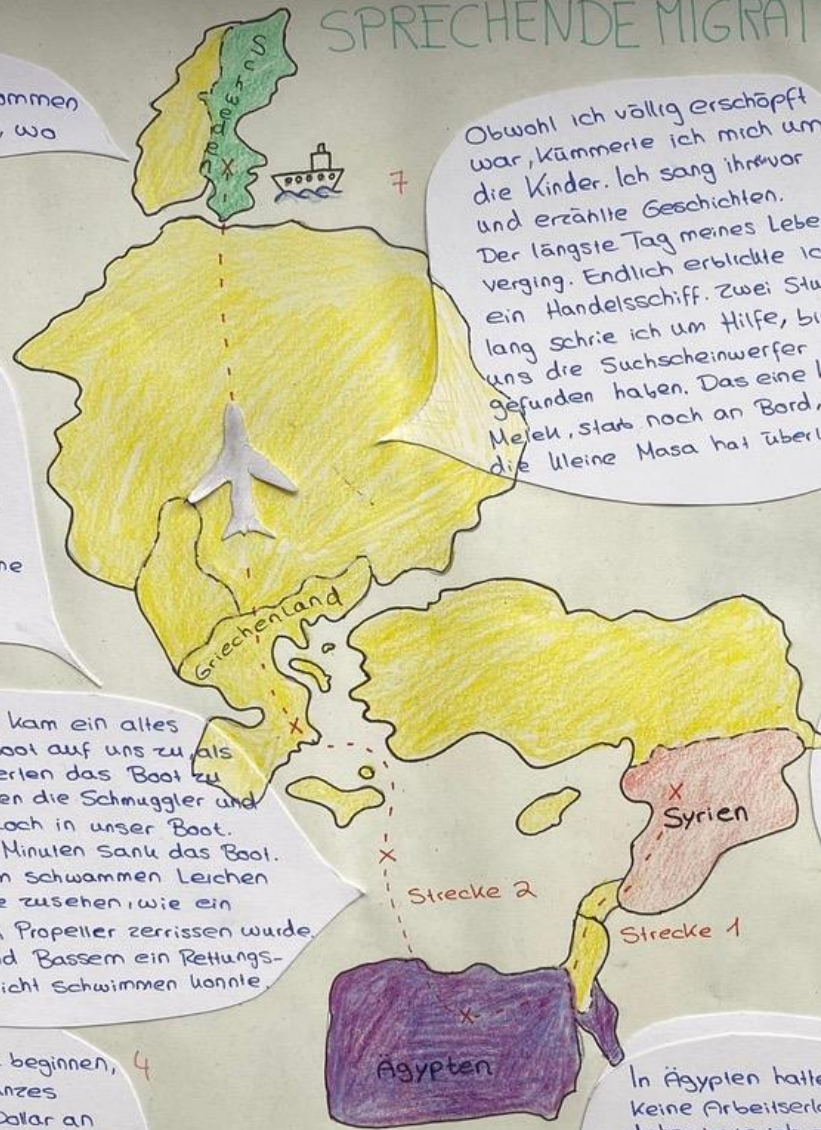 SPRECHENDE MIGRAT
ommen
, wo
Schweden
7
Obwohl ich völlig erschöpft
war, kümmerte ich mich um
die Kinder. Ich sang ihnen vor
und erzählte Geschichten.
Der längste Tag meines Lebe
verging. Endlich erblickte ic
ein Handelsschiff. Zwei Stu
lang schrie ich um Hilfe, bi
uns die Suchscheinwerfer
gefunden haben. Das eine
Melek, starb noch an Bord,
die kleine Masa hat überl
ne
Griechenland
kam ein altes
oot auf uns zu, als
erten das Boot zu
en die Schmuggler und
Loch in unser Boot.
Minuten sank das Boot.
n schwammen Leichen
e zusehen, wie ein
Propeller zerrissen wurde.
d Bassem ein Rettungs-
icht schwimmen konnte.
Syrien
Strecke 2
Strecke 1
Ägypten
beginnen,
4
nzes
Dollar an
In Ägypten hatte
keine Arbeitserl